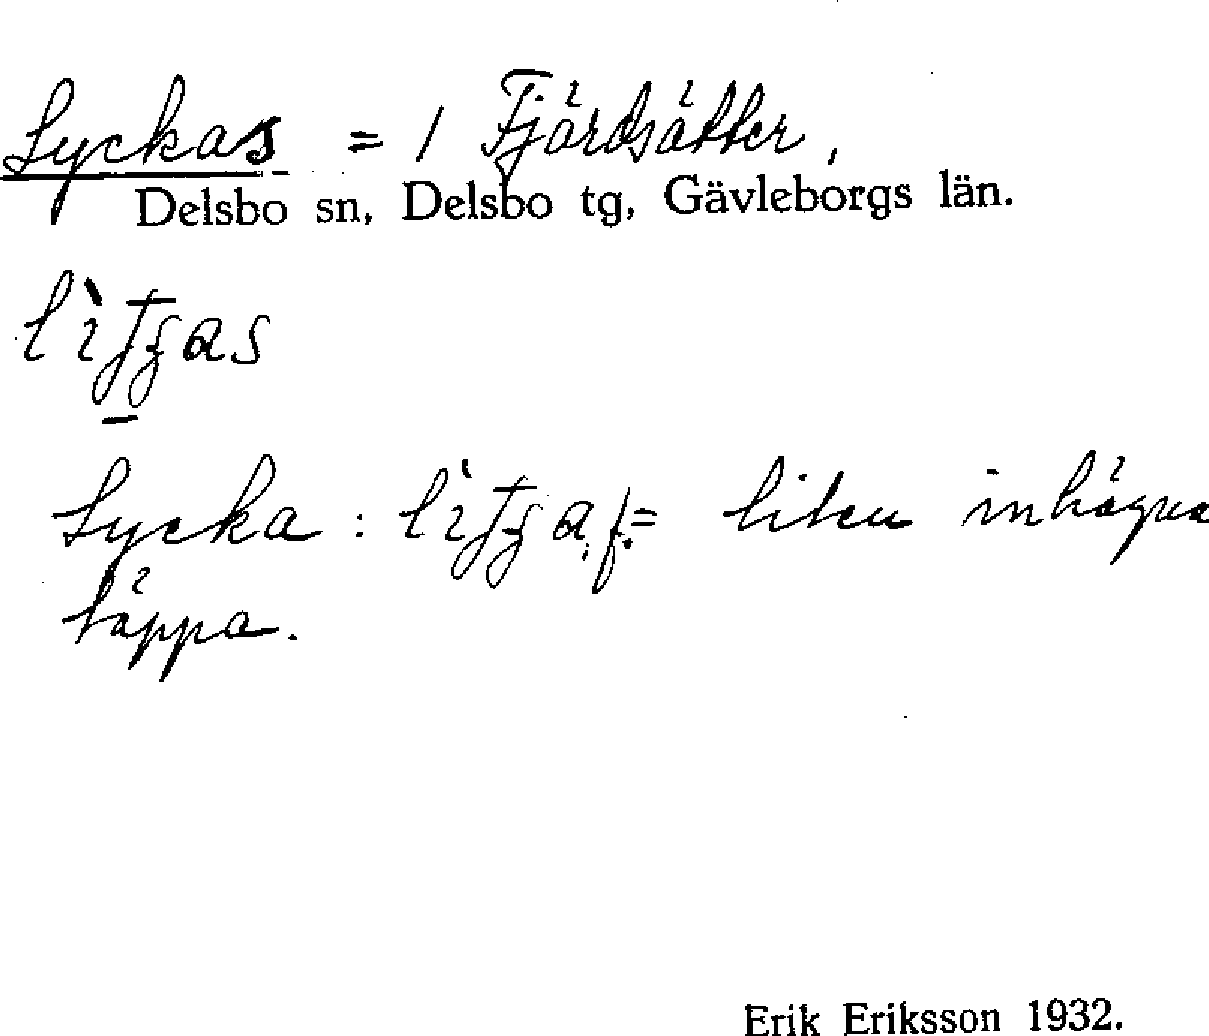 Lyckas = 1 Fjärdsätter,
Delsbo sn, Delsbo tg, Gävleborgs län.
Lycka : f. = liten inhägna
täppa.
Erik Eriksson 1932.